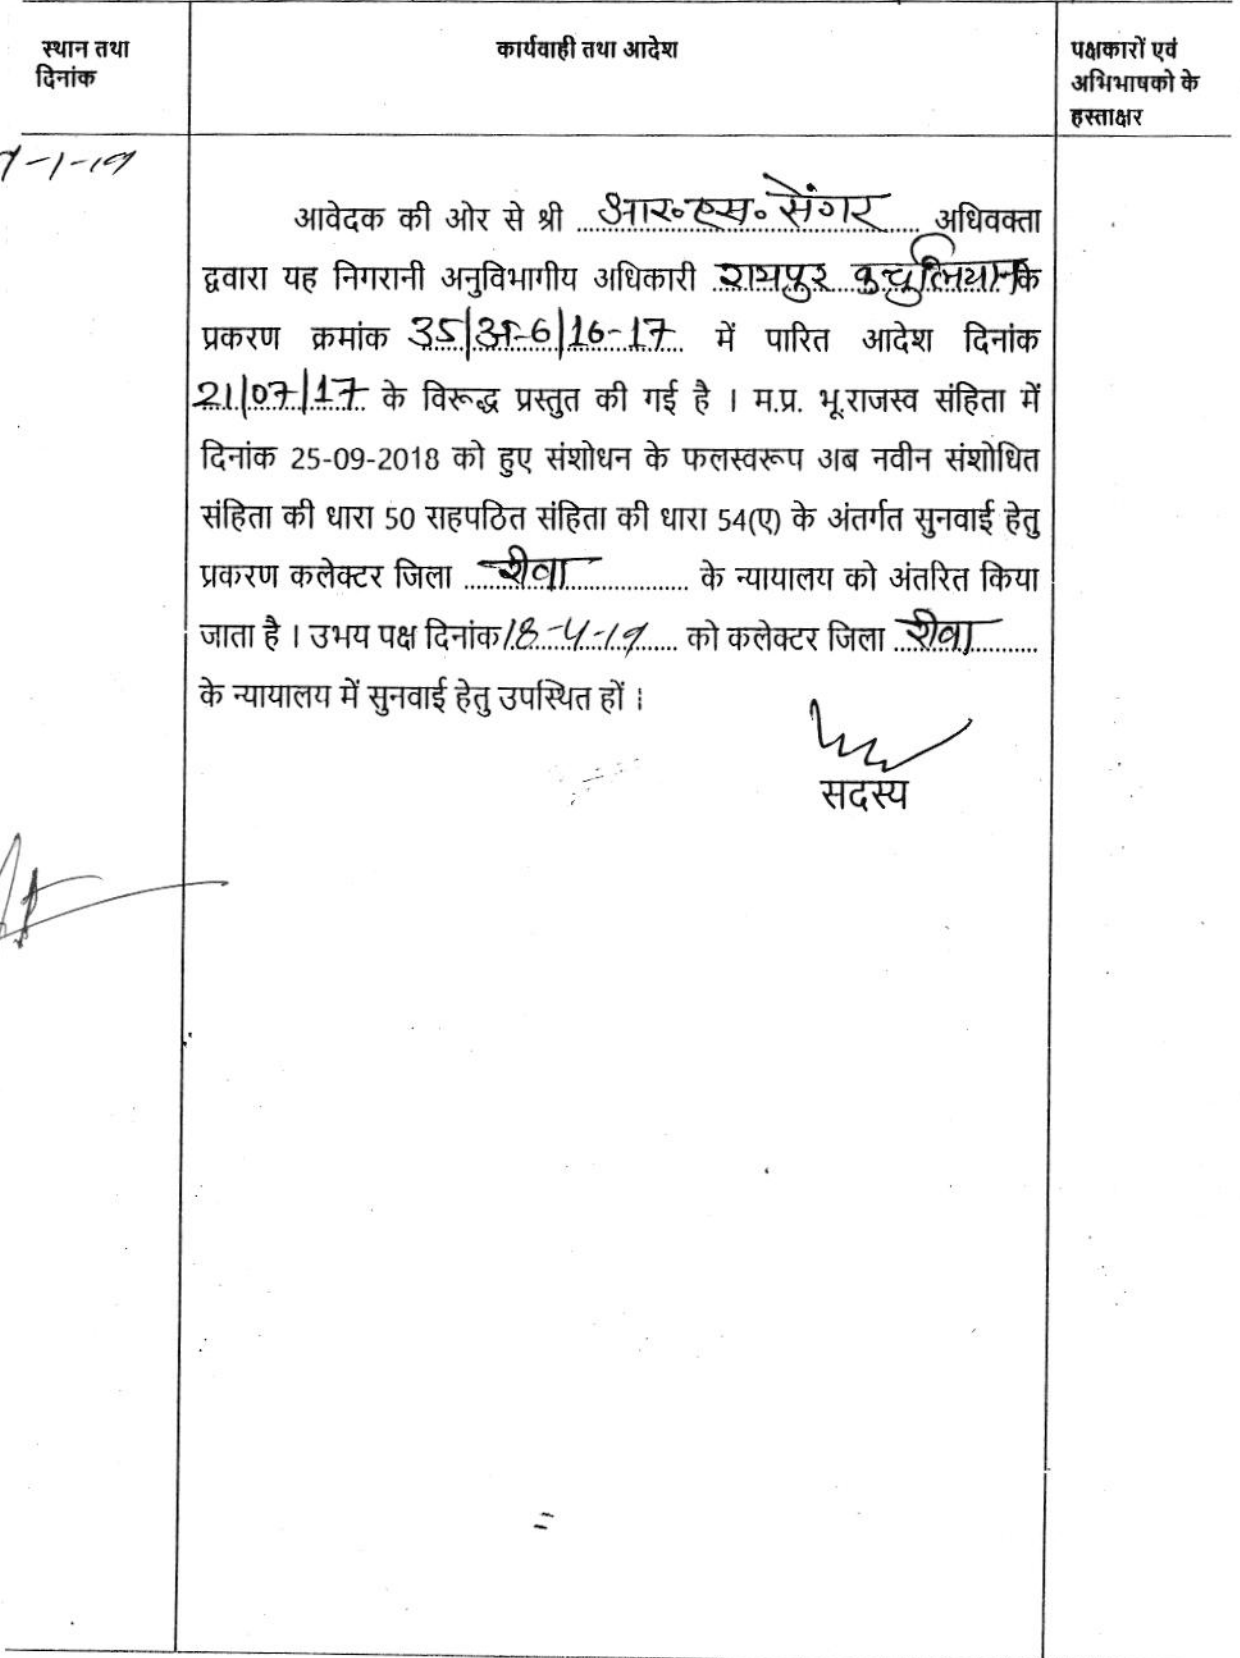 स्थान तथा
दिनांक
कार्यवाही तथा आदेश
पक्षकारों एवं
अभिभाषको के
हस्ताक्षर
-1-19
आवेदक की ओर से श्री आर॰एस॰ सेंगर अधिवक्ता
द्वारा यह निगरानी अनुविभागीय अधिकारी रायपुर कुर्चुलियान के
प्रकरण क्रमांक 35/अ-6/16-17 में पारित आदेश दिनांक
21/07/17 के विरूद्ध प्रस्तुत की गई है । म.प्र. भू.राजस्व संहिता में
दिनांक 25-09-2018 को हुए संशोधन के फलस्वरूप अब नवीन संशोधित
संहिता की धारा 50 राहपठित संहिता की धारा 54(ए) के अंतर्गत सुनवाई हेतु
प्रकरण कलेक्टर जिला रीवा के न्यायालय को अंतरित किया
जाता है । उभय पक्ष दिनांक 18-4-19 को कलेक्टर जिला रीवा
के न्यायालय में सुनवाई हेतु उपस्थित हों ।
सदस्य